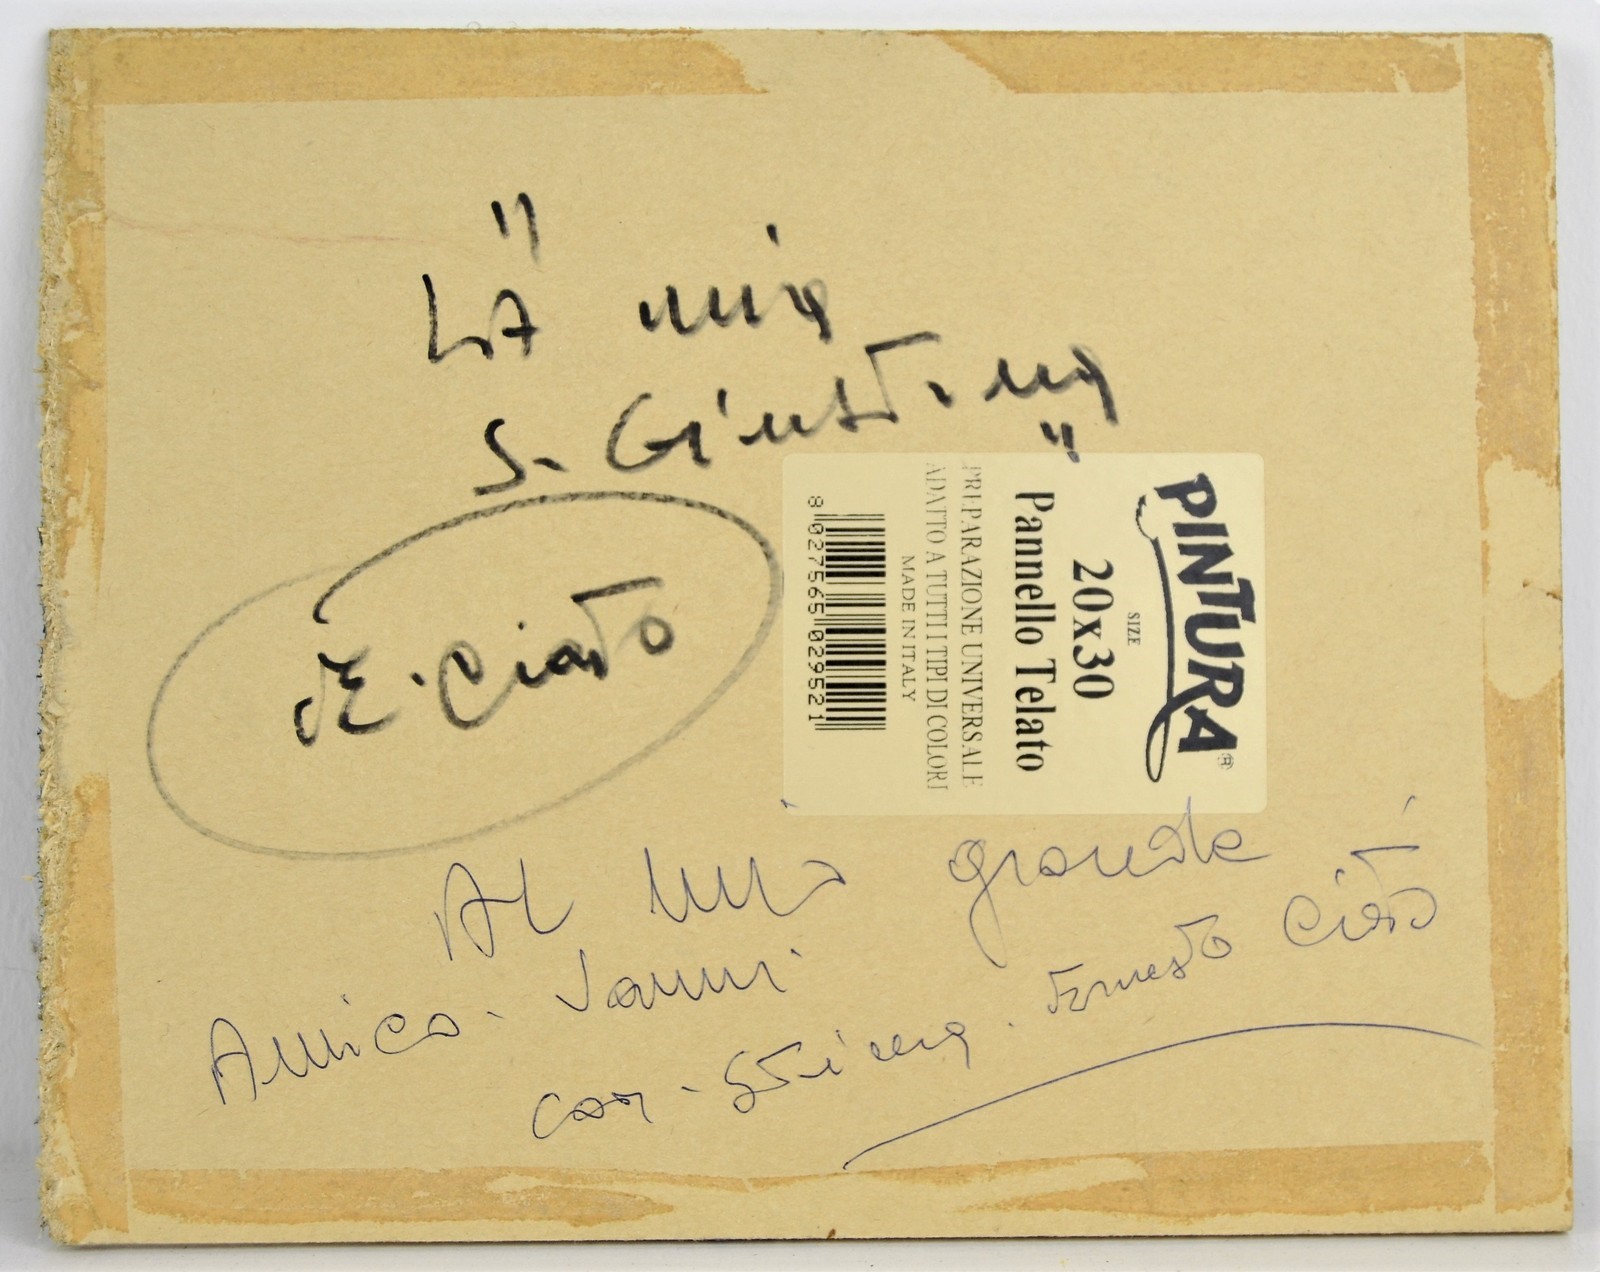 "LA mia
S. Giustina"
E. Ciato
PINTURA®
SIZE
20x30
Pannello Telato
PREPARAZIONE UNIVERSALE
ADATTO A TUTTI I TIPI DI COLORI
MADE IN ITALY
8 027565 029521
Al mio grande
Amico. Vanni
con. Stima. Ernesto Ciato